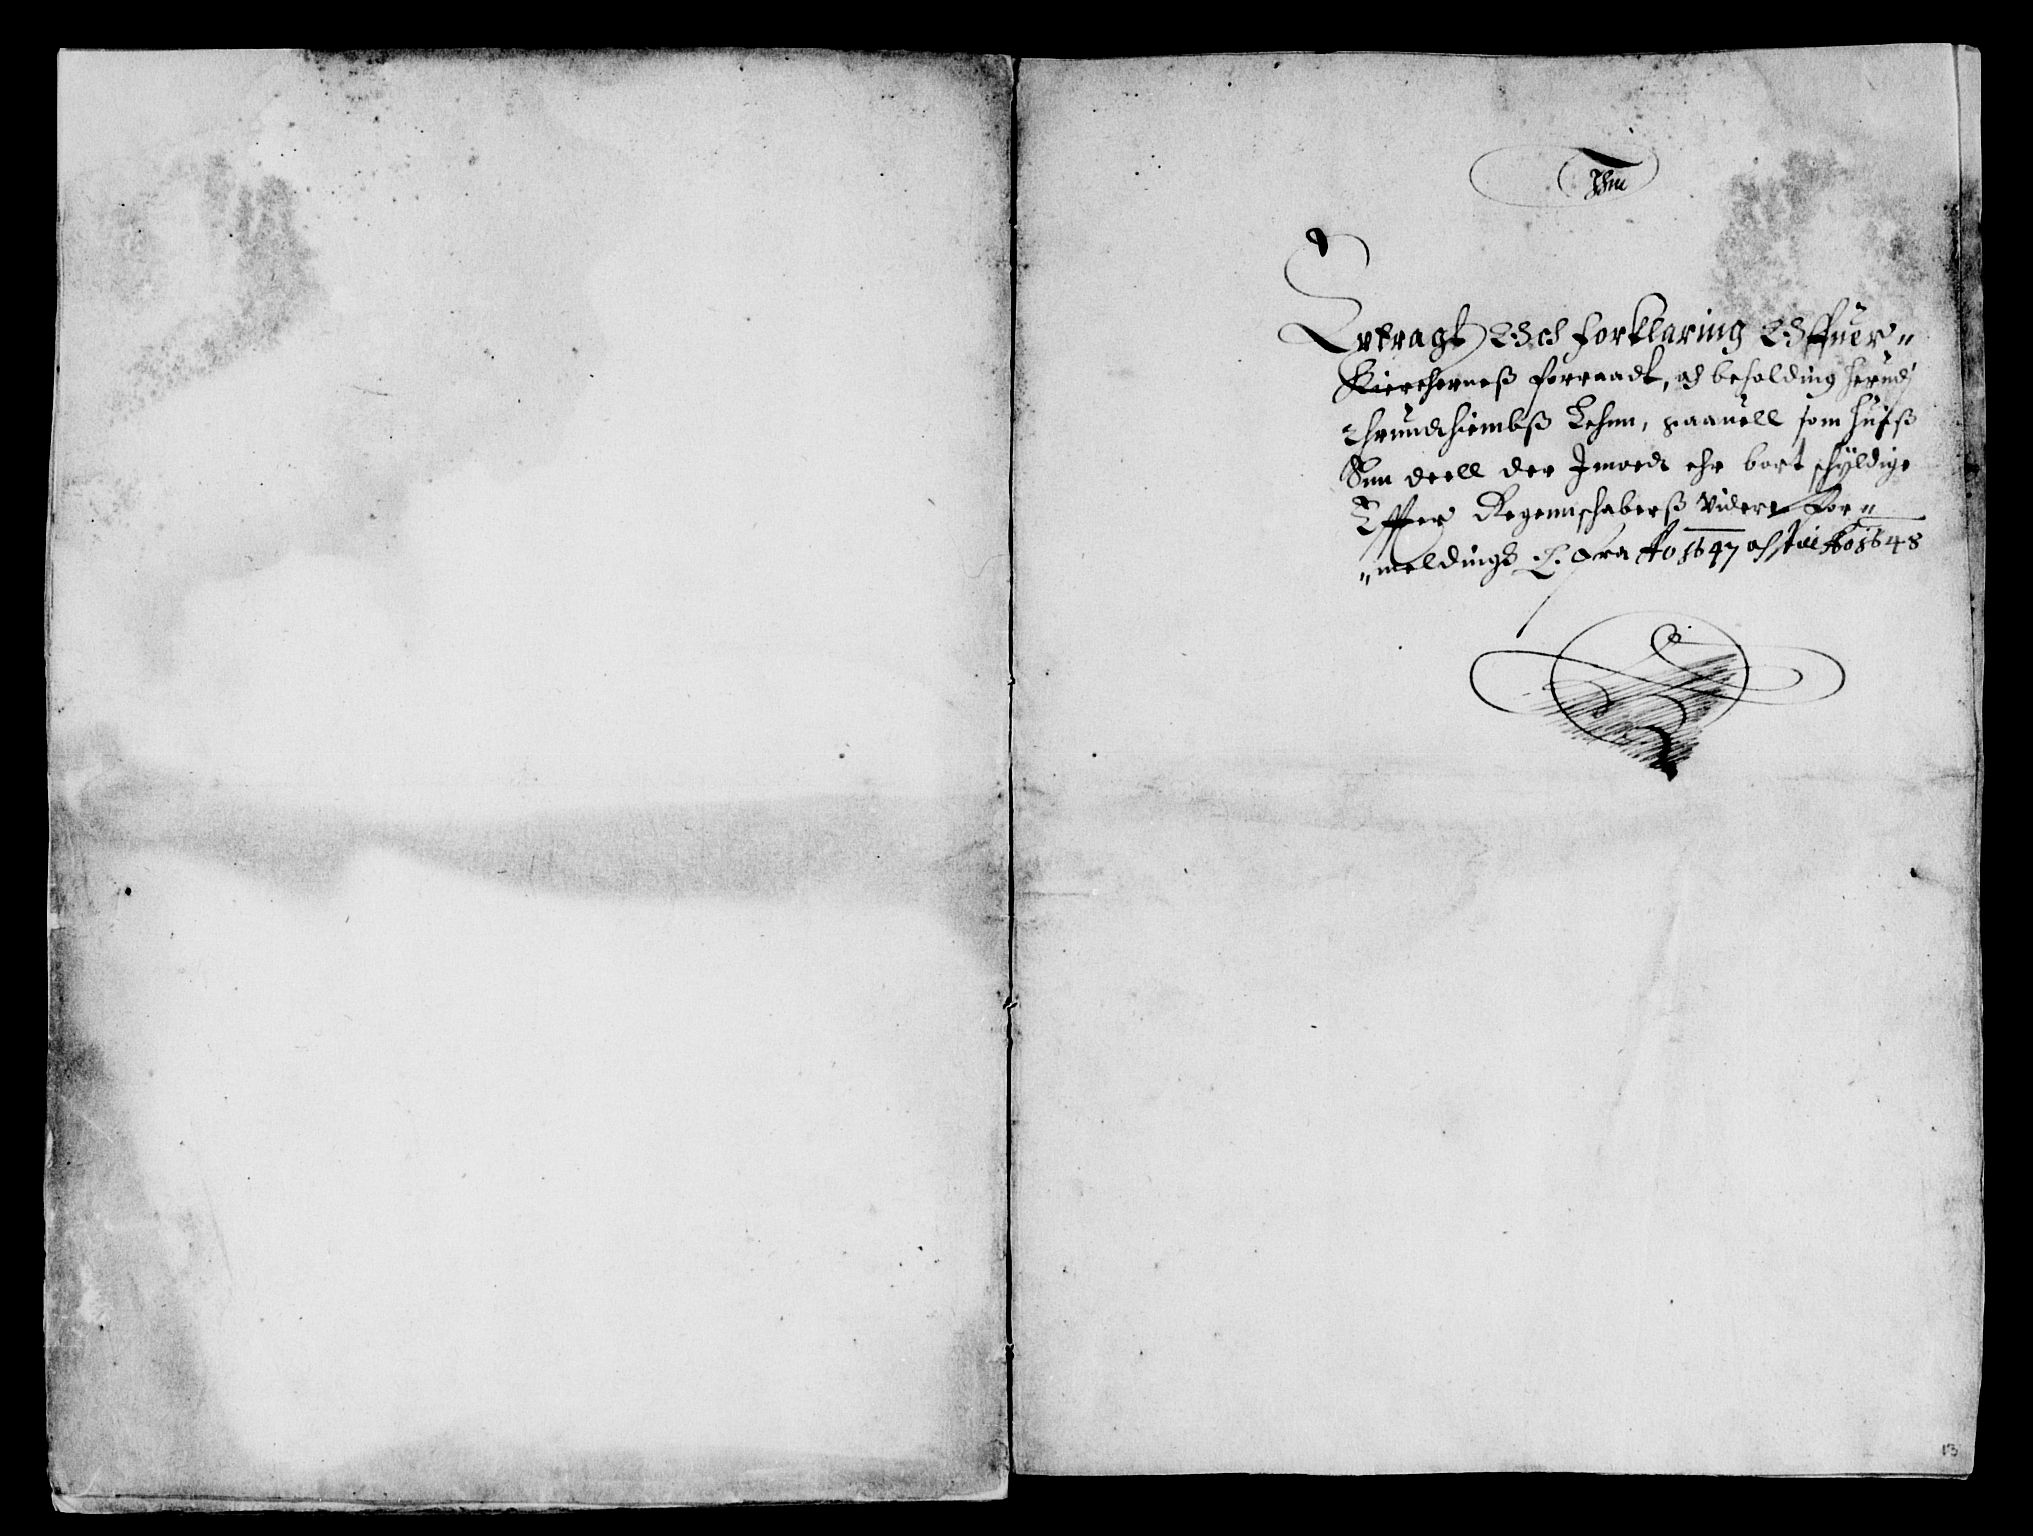 Extragt Och forklaring Offuer
Kircherneß forraadt, och beholding herudj
thrundhiembß Lehnn, saauell som huiß
Sum deell der Jmoed ehr bort schyldige
Effter Regennschaberß videre For
meldings fra Ao 1647 och till Ao 1648
13